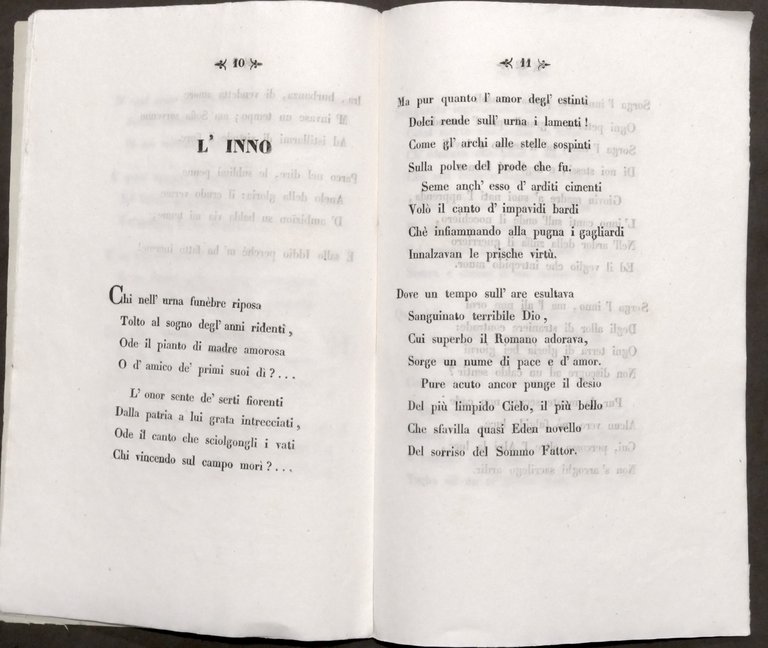 10
L' INNO
Chi nell' urna funèbre riposa
Tolto al sogno degl' anni ridenti,
Ode il pianto di madre amorosa
O d' amico de' primi suoi dì?...
L' onor sente de' serti fiorenti
Dalla patria a lui grata intrecciati,
Ode il canto che sciolgongli i vati
Chi vincendo sul campo morì?...
11
Ma pur quanto l' amor degl' estinti
Dolci rende sull' urna i lamenti!
Come gl' archi alle stelle sospinti
Sulla polve del prode che fu.
Seme anch' esso d' arditi cimenti
Volò il canto d' impavidi bardi
Chè infiammando alla pugna i gagliardi
Innalzavan le prische virtù.
Dove un tempo sull' are esultava
Sanguinato terribile Dio,
Cui superbo il Romano adorava,
Sorge un nume di pace e d' amor.
Pure acuto ancor punge il desio
Del più limpido Cielo, il più bello
Che sfavilla quasi Eden novello
Del sorriso del Sommo Fattor.